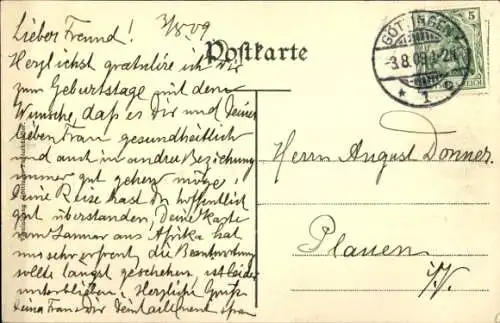 3/8 09
Lieber Freund!
Herzlichst gratuliere ich Dir
zum Geburtstage mit dem
Wunsche, daß es Dir und Deiner
lieben Frau gesundheitlich
und auch in andrer Beziehung
immer gut gehen möge!
Deine Reise hast Du hoffentlich
gut überstanden, Deine Karte
vom Januar aus Afrika hat
uns sehr erfreut, die Beantwortung
sollte längst geschehen, ist leider
unterblieben! Herzliche Grüße
Deine Frau Dir Dein
Postkarte
GÖTTINGEN
3.8.09
* 1 c
5
REICH
Herrn August Donner.
Plauen
i/V.